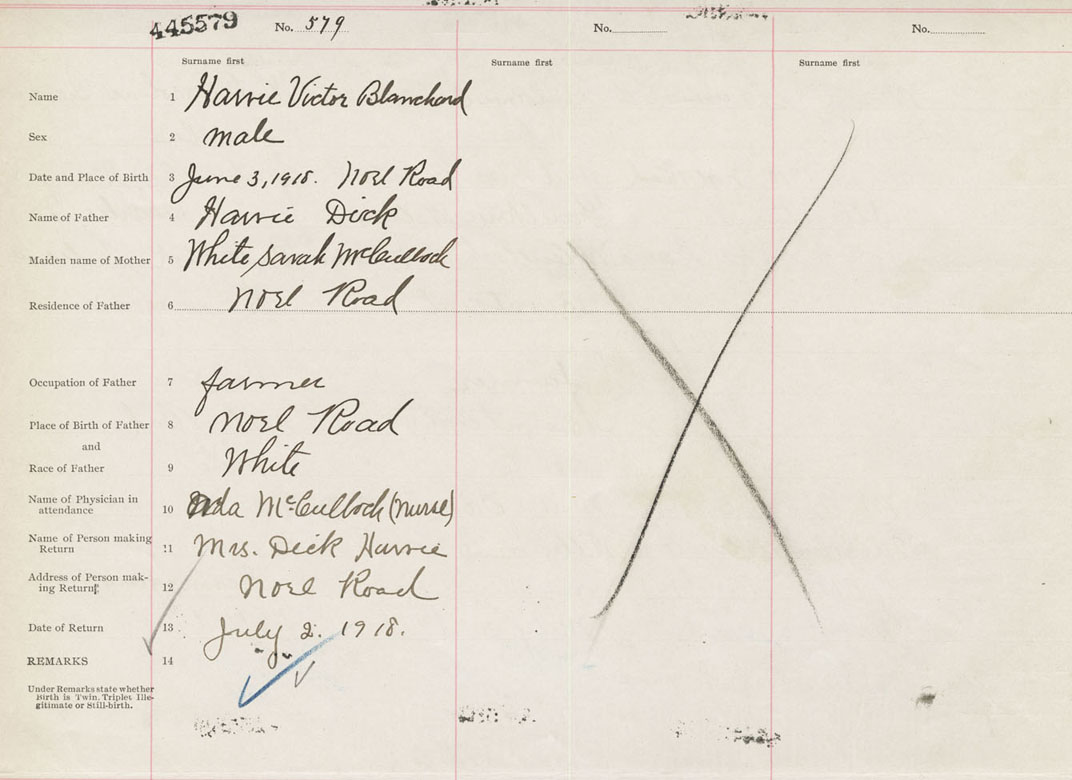 445579 No. 579 No. No.
Surname first Surname first Surname first
Name 1 Harvie Victor Blanchard
Sex 2 male
Date and Place of Birth 3 June 3, 1918. Noel Road
Name of Father 4 Harvie Dick
Maiden name of Mother 5 White Sarah McCullock
Residence of Father 6 Noel Road
Occupation of Father 7 farmer
Place of Birth of Father 8 Noel Road
and
Race of Father 9 White
Name of Physician in
attendance 10 Ada McCullock (nurse)
Name of Person making
Return 11 Mrs. Dick Harvie
Address of Person mak-
ing Return 12 Noel Road
Date of Return 13 July 2. 1918.
REMARKS 14
Under Remarks state whether
Birth is Twin, Triplet, Ille-
gitimate or Still-birth.